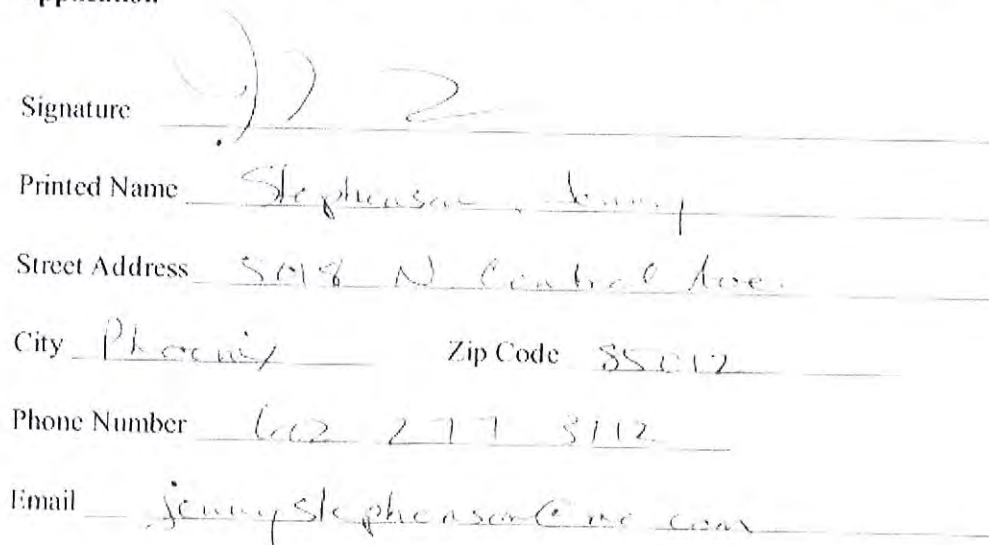 Application
Signature
Printed Name Stephenson, Jenny
Street Address 5018 N. Central Ave.
City Phoenix Zip Code 85012
Phone Number 602 277 3112
Email jennystephenson@me.com